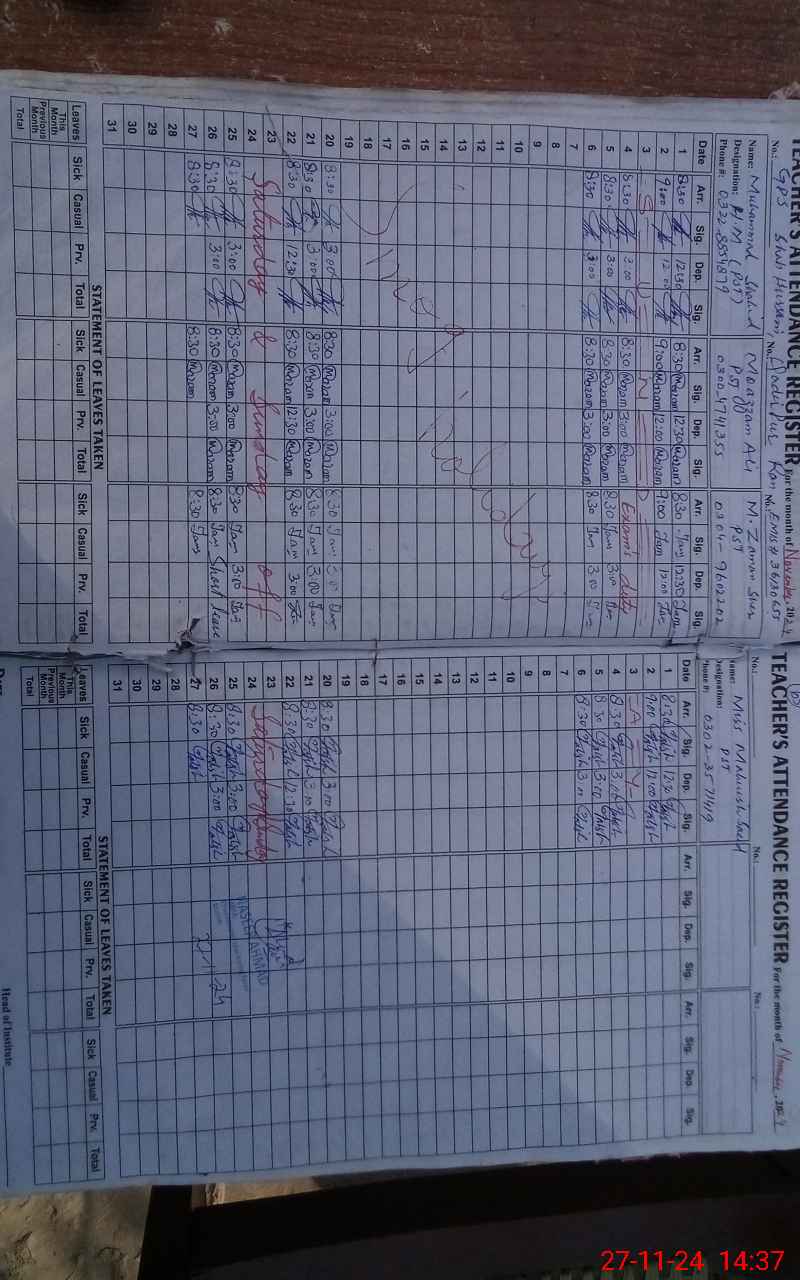 TEACHER'S ATTENDANCE REGISTER For the month of November, 2024
No.: GPS
No.:
No.: EMIS # 36130655
Name: Muhammad Shahid
Moazzam Ali
M. Zaman Sher
Designation: H.M (PST)
PST
PST
Phone #: 0322-8854879
0300-4741355
0304-9602202
Date Arr. Sig. Dep. Sig. Arr. Sig. Dep. Sig. Arr. Sig. Dep. Sig.
1 8:30 12:30 8:30 Mozam 12:30 Mozam 8:30 Jam 12:30 Jam
2 9:00 12:00 9:00 Mozam 12:00 Mozam 9:00 Jam 12:00 Jam
3 S U N D
4 8:30 3:00 8:30 Mozam 3:00 Mozam Exam's duty
5 8:30 3:00 8:30 Mozam 3:00 Mozam 8:30 Jam 3:00 Jam
6 8:30 3:00 8:30 Mozam 3:00 Mozam 8:30 Jam 3:00 Jam
7
8
9
10
11
12
13
14
15
16
17
18
19
Smog holidays
20 8:30 3:00 8:30 Mozam 3:00 Mozam 8:30 Jam 3:00 Jam
21 8:30 3:00 8:30 Mozam 3:00 Mozam 8:30 Jam 3:00 Jam
22 8:30 12:30 8:30 Mozam 12:30 Mozam 8:30 Jam 3:00
23
24 Saturday & Sunday off
25 8:30 3:00 8:30 Mozam 3:00 Mozam 8:30 Jam 3:00 Jam
26 8:30 3:00 8:30 Mozam 3:00 Mozam 8:30 Jam Short leave
27 8:30 8:30 Mozam 8:30 Jam
28
29
30
31
STATEMENT OF LEAVES TAKEN
Leaves Sick Casual Prv. Total Sick Casual Prv. Total Sick Casual Prv. Total
This Month
Previous Month
Total
TEACHER'S ATTENDANCE REGISTER For the month of November, 2024
No.:
No.:
No.:
Name: Miss Mahwish Saeed
Designation: PST
Phone #: 0302-3571419
Date Arr. Sig. Dep. Sig. Arr. Sig. Dep. Sig. Arr. Sig. Dep. Sig.
1 8:30 12:30
2 9:00 12:00
3 A Y
4 8:30 3:00
5 8:30 3:00
6 8:30 3:00
7
8
9
10
11
12
13
14
15
16
17
18
19
20 8:30 3:00
21 8:30 3:00
22 8:30 12:30
23
24 Saturday
25 8:30 3:00
26 8:30 3:00
27 8:30
28
29
30
31
AHMAD
STATEMENT OF LEAVES TAKEN
Leaves Sick Casual Prv. Total Sick Casual Prv. Total Sick Casual Prv. Total
This Month
Previous Month
Total
Head of Institute
27-11-24 14:37